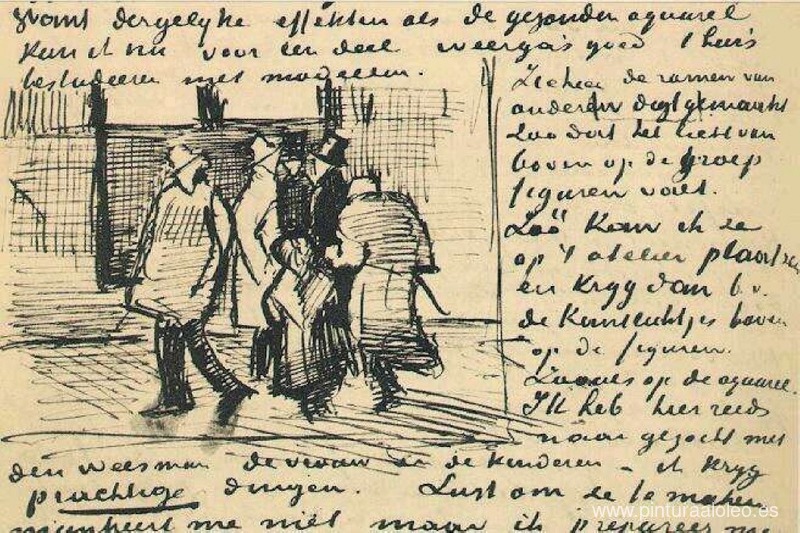 want dergelyke effekten als de gezonden aquarel
kan ik nu voor een deel weergaȧs goed thuis
bestudeeren met modellen.
Ziehier de ramen van
onderen digt gemaakt
Zoo dat het licht van
boven op de groep
figuren valt.
Zóó kan ik ze
op 't atelier plaatsen
en kryg dan b.v.
de kantlichtjes boven
op de figuren.
Zooals op de aquarel.
Ik heb hier reeds
naar gezocht met
den weesman de vrouw en de kinderen – ik kryg
prachtige dingen. Lust om ze te maken
mankeert me niet maar ik prepareer me
www.pinturaaloleo.es